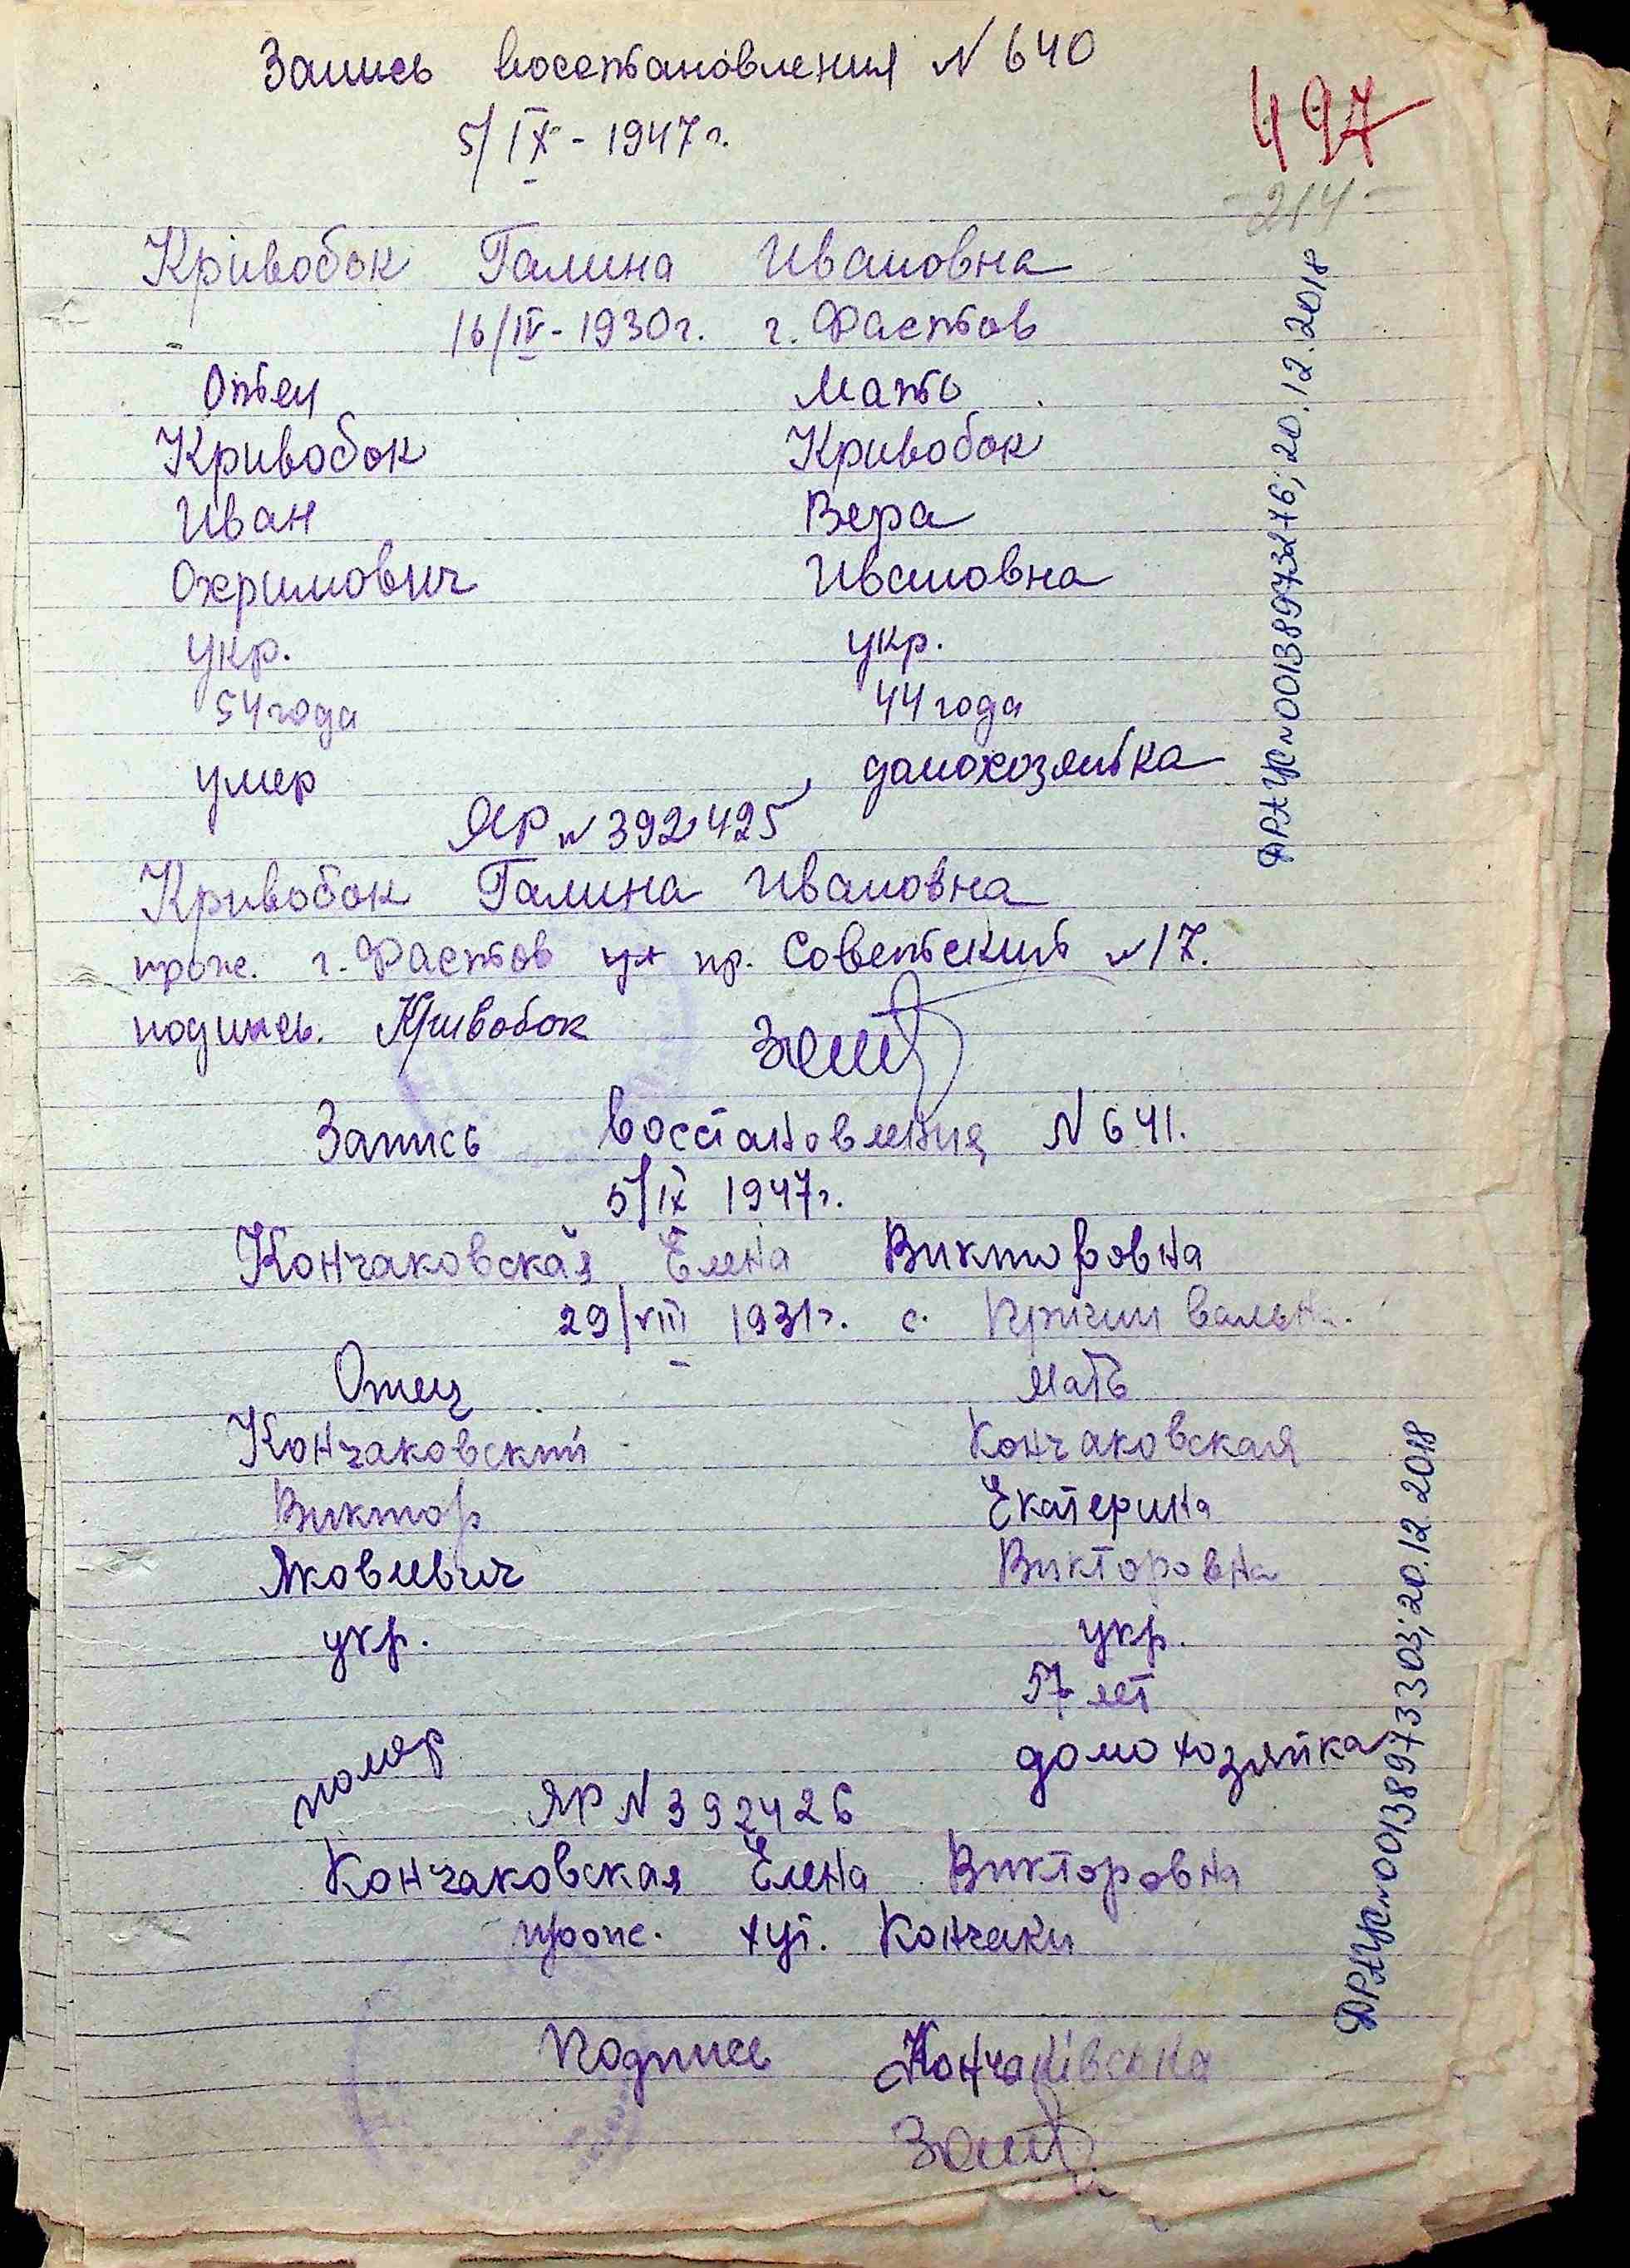 Запись восстановления N 640
497
5/IX - 1947 г.
- 214 -
Кривобок Галина Ивановна
16/IV - 1930 г. г. Фастов
Отец Мать
Кривобок Кривобок
Иван Вера
Охримович Ивановна
укр. укр.
54 года 44 года
умер домохозяйка
ЯР N 392425
Кривобок Галина Ивановна
прож. г. Фастов ул пр. Советский N 17.
подпись. Кривобок
ДРАЦС N 00138973276; 20.12.2018
Запись восстановления N 641.
5/IX 1947 г.
Кончаковская Елена Викторовна
29/VIII 1931 г. с.
Отец Мать
Кончаковский Кончаковская
Виктор Екатерина
Яковлевич Викторовна
укр. укр.
57 лет
помер домохозяйка
ЯР N 392426
Кончаковская Елена Викторовна
прож. хут. Кончаки
Подпись Кончаківська
ДРАЦС N 00138973303; 20.12.2018